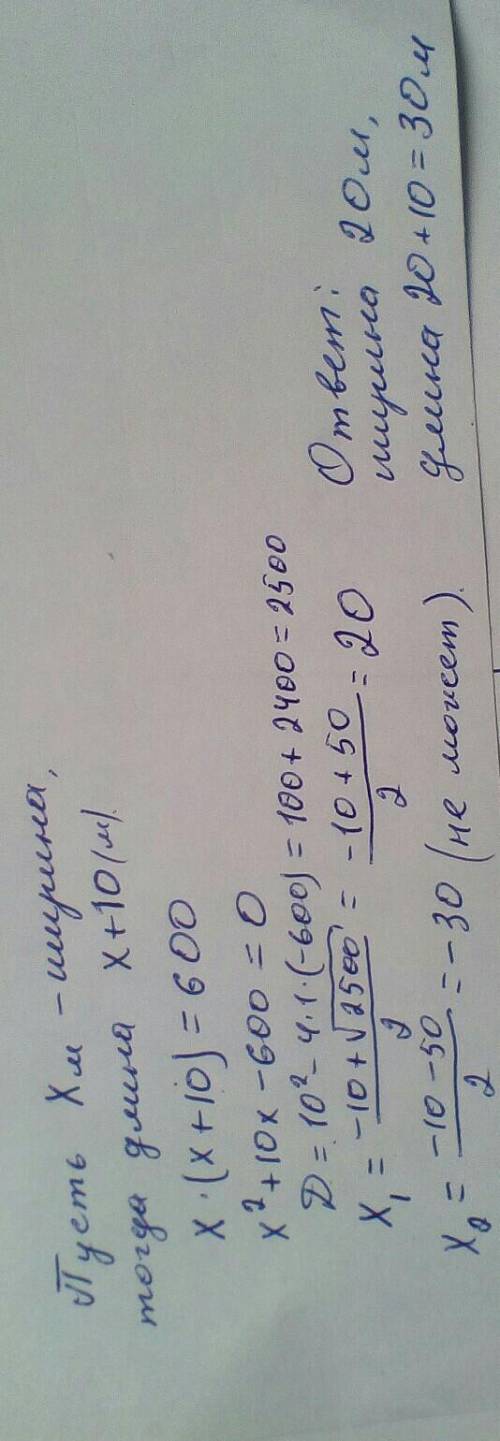 Пусть x м - ширина,
тогда длина x+10 (м).
x·(x+10)=600
x²+10x-600=0
D=10²-4·1·(-600)=100+2400=2500
x₁ = (-10+√2500)/2 = (-10+50)/2 = 20
x₂ = (-10-50)/2 = -30 (не может).
Ответ:
ширина 20м,
длина 20+10=30м